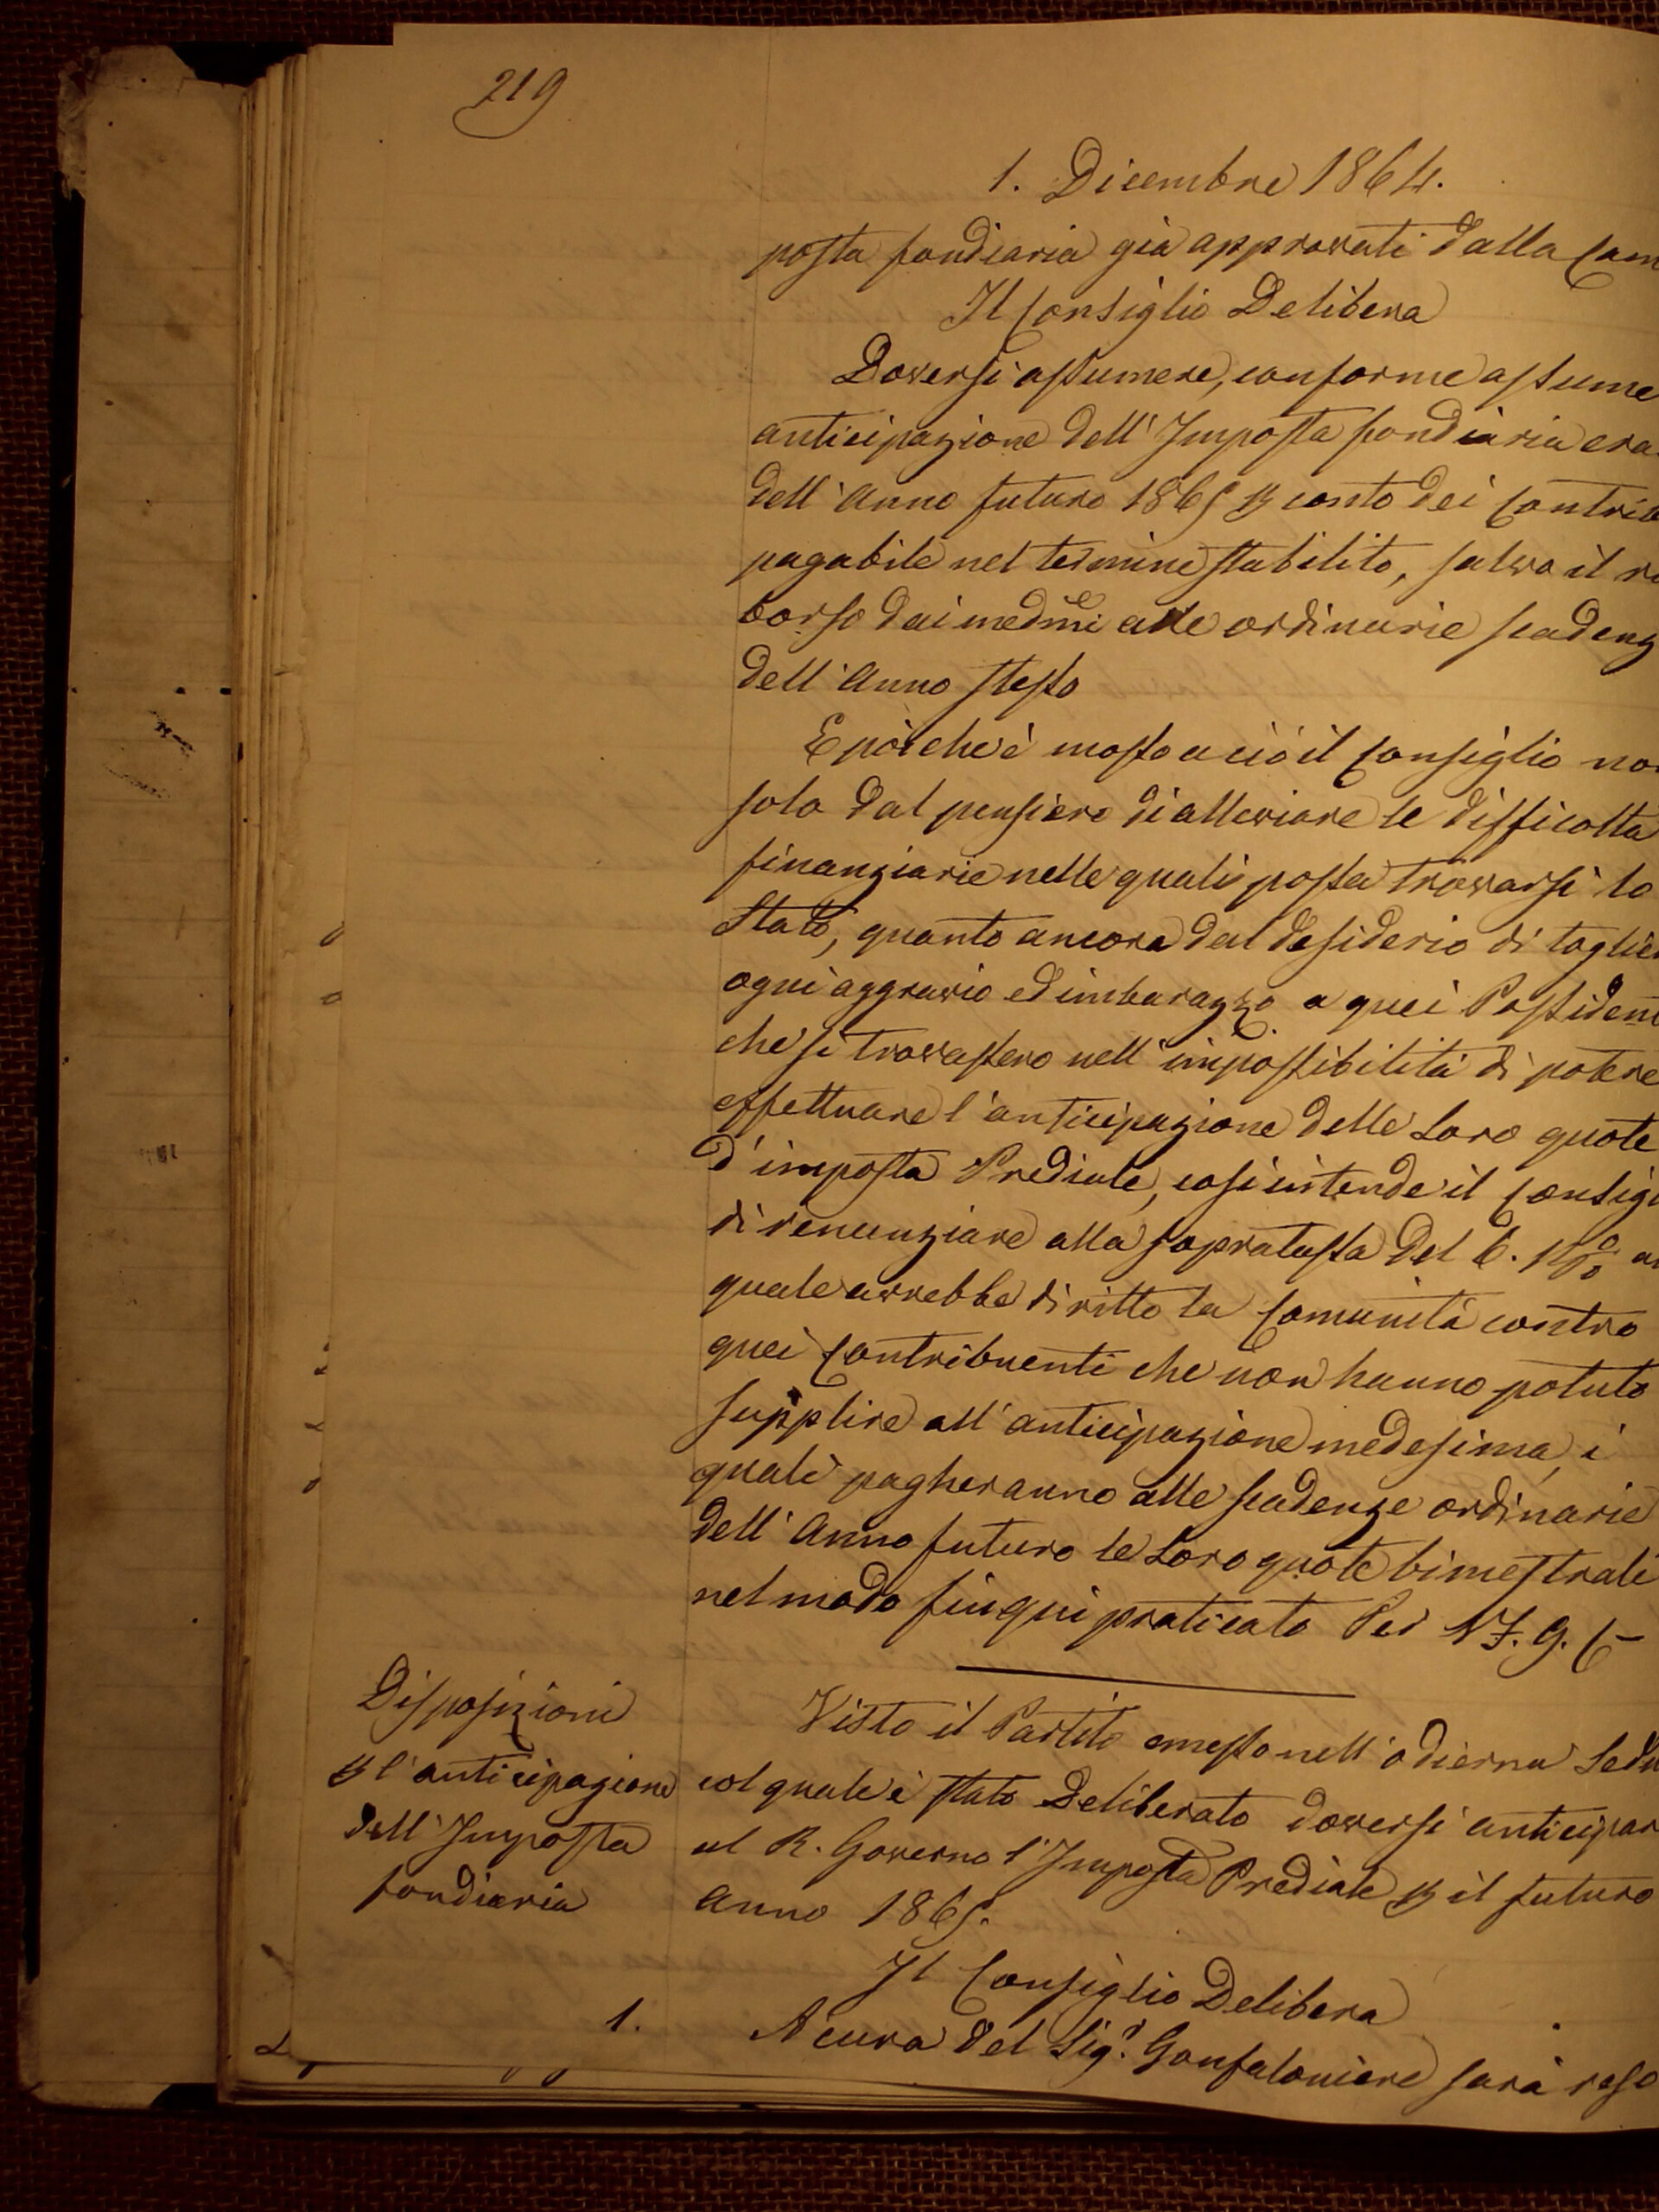 219
1. Dicembre 1864.
posta fondiaria già approvati dalla Cam
Il Consiglio Delibera
Doversi assumere, conforme assume
anticipazione dell'Imposta fondiaria era
dell'Anno futuro 1865 p conto dei Contrib
pagabile nel termine stabilito, salvo il ri
borso dai medmi alle ordinarie scadenz
dell'Anno stesso
E poichè è mosso a ciò il Consiglio non
solo dal pensiero di alleviare le difficolta
finanziarie nelle quali possa trovarsi lo
Stato, quanto ancora dal desiderio di toglier
ogni aggravio ed imbarazzo a quei Possiden
che si trovassero nell'impossibilità di potere
effettuare l'anticipazione delle Loro quote
d'imposta Prediale, così intende il Consigl
di renunziare alla sopratassa del 6. p% al
quale avrebbe diritto la Comunità contro
quei Contribuenti che non hanno potuto
supplire all'anticipazione medesima, i
quali pagheranno alle scadenze ordinarie
dell'Anno futuro le Loro quote bimestrali
nel modo fin qui praticato Per V. 17. F. 9. C –
Disposizioni
p l'anticipazione
dell'Imposta
fondiaria
Visto il Partito emesso nell'odierna Sedu
col quale è stato Deliberato doversi anticipar
al R. Governo l'Imposta Prediale p il futuro
Anno 1865.
Il Consiglio Delibera
1. A cura del Sigr. Gonfaloniere sarà reso